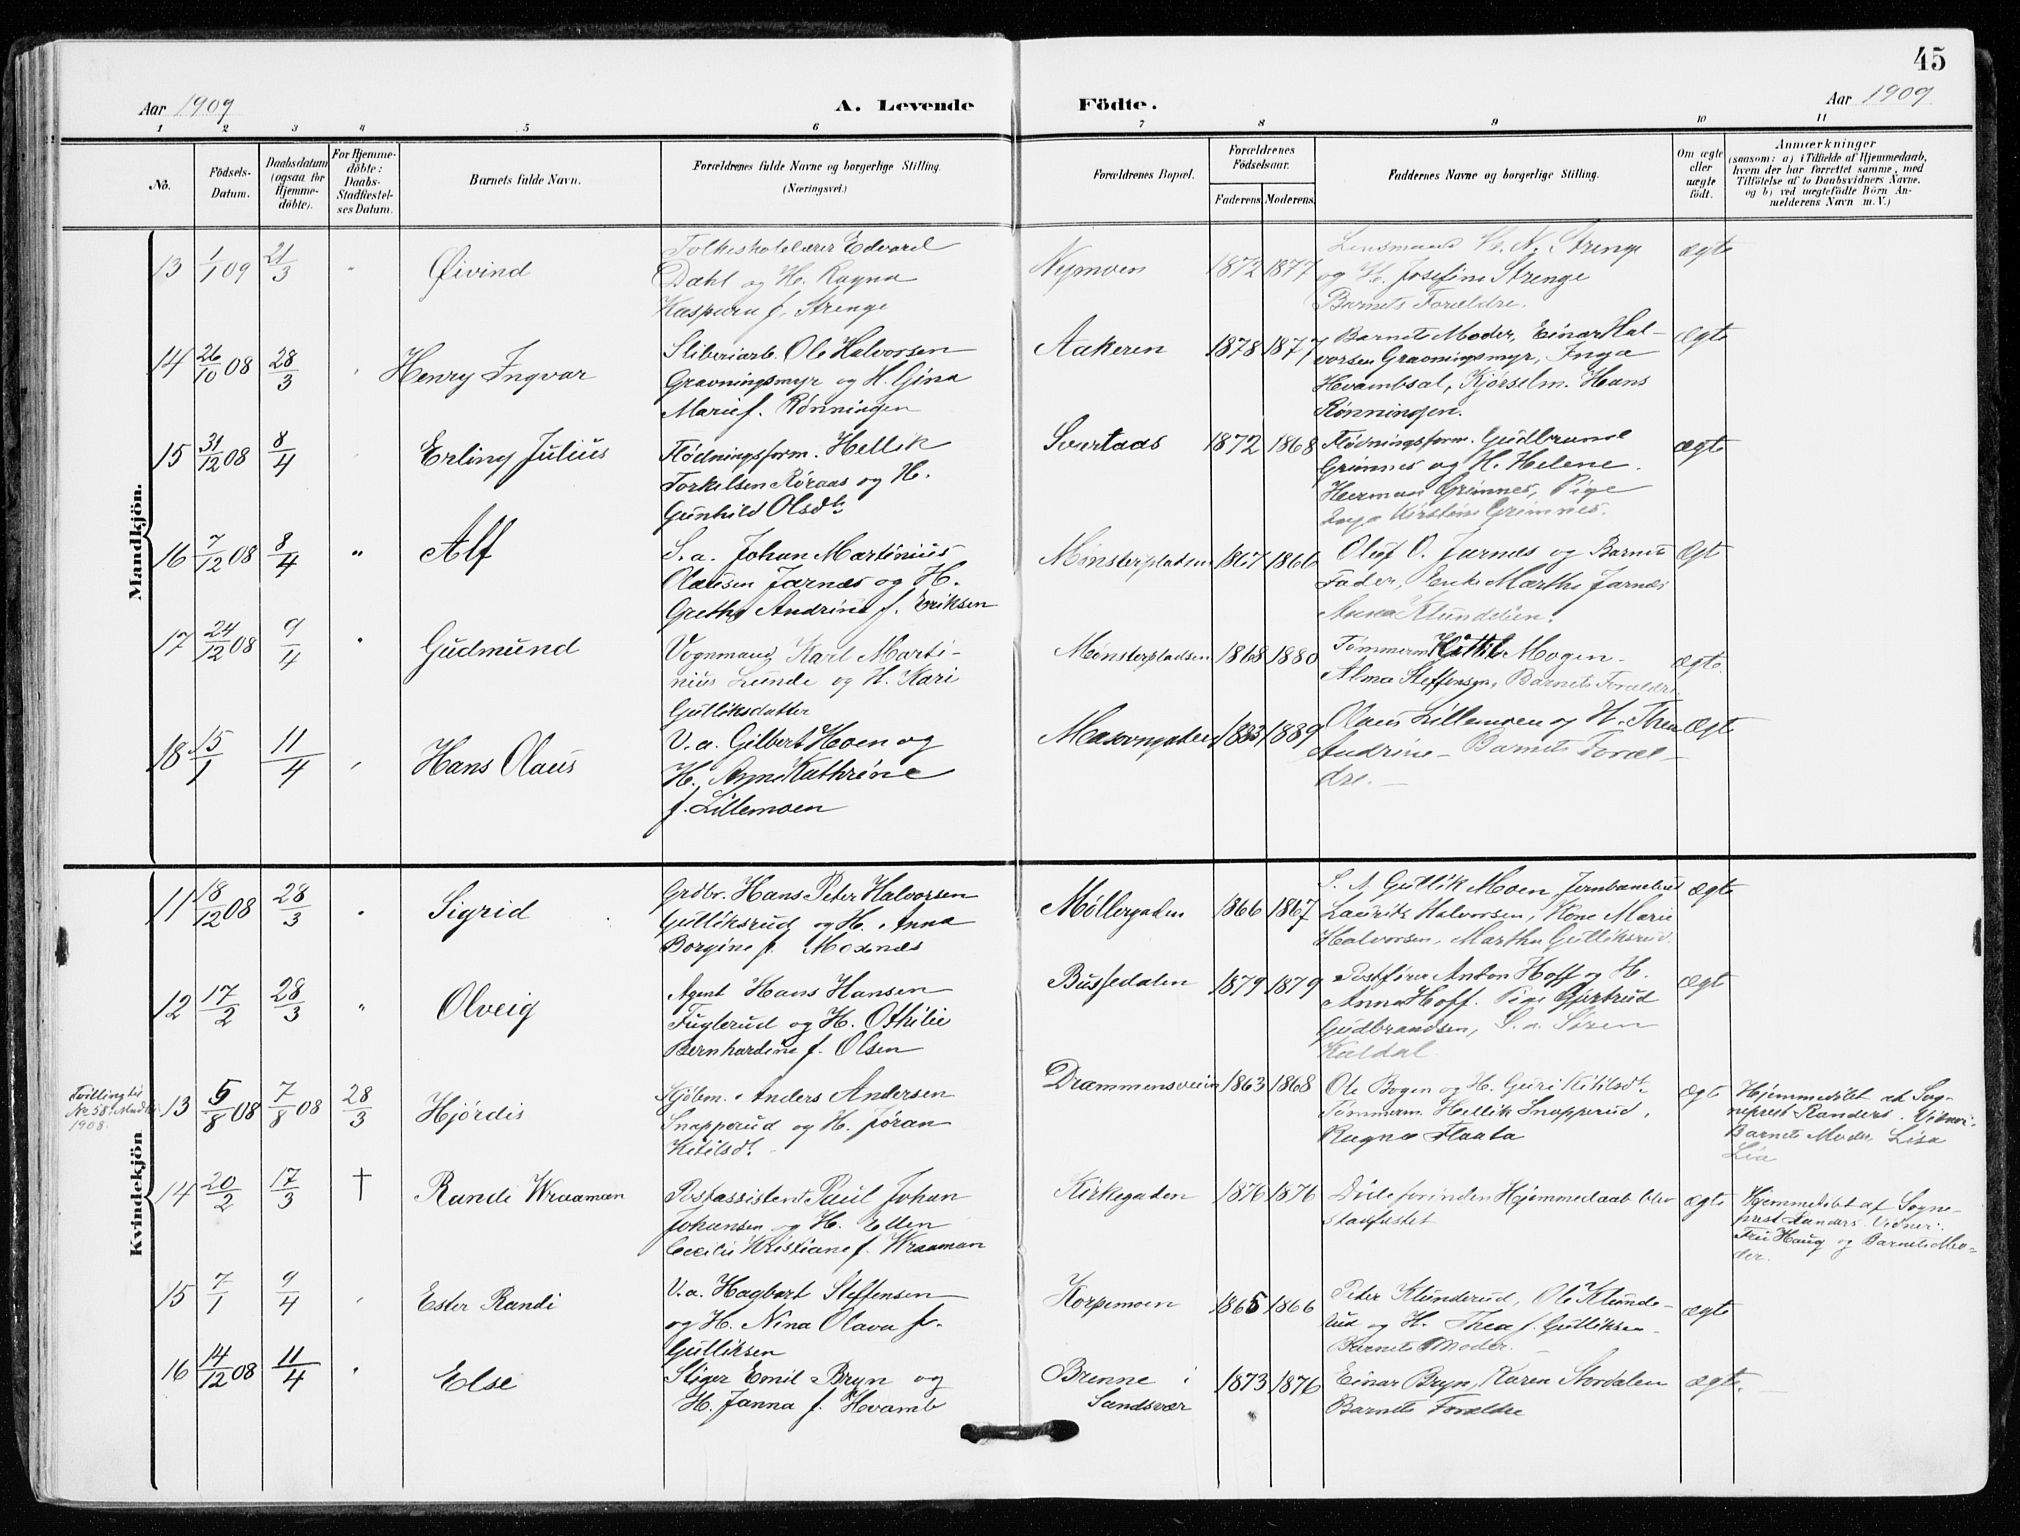 45
Aar 1909
A. Levende Födte.
Aar 1909
1 2 3 4 5 6 7 8 9 10 11
No.
Födsels-
Datum.
Daabsdatum
(ogsaa for
Hjemme-
döbte).
For Hjemme-
döbte:
Daabs-
Stadfæstel-
ses Datum.
Barnets fulde Navn.
Forældrenes fulde Navne og borgerlige Stilling.
(Næringsvei.)
Forældrenes Bopæl.
Forældrenes
Födselsaar.
Faderens Moderens
Faddernes Navne og borgerlige Stilling.
Om ægte
eller
uægte
født.
Anmærkninger
(saasom: a) i Tilfælde af Hjemmedaab,
hvem der har forrettet samme, med
Tilföielse af to Daabsvidners Navne,
og b) ved uægtefödte Börn An-
melderens Navn m. V.)
Mandkjön.
13 1/1 09 21/3 " Øivind
Edvard
Dahl og H. Ragna
f. Strenge
Nymoen 1872 1877
Lensmand H. N. Strenge
og H. Josefine Strenge
Barnets Forældre.
ægte
14 26/10 08 28/3 " Henry Ingvar
Sliberiarb. Ole Halvorsen
Gravningsmyr og H. Gina
Marie f. Rønningen
Aakeren 1878 1877
Barnets Moder, Einar Hal-
vorsen Gravningsmyr, Inga
Hvambsal, Kjørselm. Hans
Rønningen.
ægte
15 31/12 08 8/4 Erling Julius
Flødningsform. Hellik
Torkelsen Røraas og H.
Gunhild Olsdtr
Svartaas 1872 1868
Flødningsform. Gudbrand
Grimnes og H. Helene
Herman Grimnes, Pige
Inga Kirstine Grimnes.
ægte
16 7/12 08 8/4 " Alf
S. a. Johan Martinius
Olausen Jarnæs og H.
Grethe Andrine f. Eriksen
Mønsterpladsen 1867 1866
Oluf O. Jarnæs og Barnets
Fader, Enke Marthe Jarnæs
Anna Klundelien.
ægt
17 24/12 08 9/4 " Gudmund
Vognmand Karl Marti-
nius Lunde og H. Kari
Gulliksdatter
Mønsterpladsen 1868 1880
Tømmerm. Kittil Mogen
Alma Steffensen, Barnets Forældre
ægte
18 15/1 11/4 " Hans Olaus
V. a. Gilbert Hoen og
H. Kathrine
f. Lillemoen
1883 1889
Olaus Lillemoen og H. Thea
Andrine - Barnets Foræl-
dre. -
ægt
Kvindekjön
11 18/12 08 28/3 " Sigrid
Grdbr. Hans Peter Halvorsen
Gulliksrud og H. Anna
Borgine f. Modenæs
Møllergaden 1866 1867
S. A. Gullik Moen,
Laurits Halvorsen, Kone Marie
Halvorsen, Martha Gulliksrud.
ægte
12 17/2 28/3 " Olveig
Agent Hans Hansen
Fuglerud og H. Othilie
Bernhardine f. Olsen
Bussedalen 1879 1879
Postfører Anton Hoff og H.
Anna Hoff. Pige Gjertrud
Gudbrandsen, S. a. Søren
Kaldal
ægt
Tvilling til
Nr. 58
1908.
13 5/8 08 7/8 08 28/3 Hjørdis
Kjølem. Anders Andersen
Snapperud og H. Jøran
Kitilsdtr.
Drammensveien 1863 1868
Ole Bogen og H. Guri Kitilsdtr
Tømmerm. Hellik Snapperud,
Ragna Flaata
ægt
Hjemmedøbt af Sog-
neprest Randers.
Barnets Moder, Lisa
Lia
14 20/2 17/3 † Randi Wraaman
Postassistent Paul Johan
Johansen og H. Ellen
Cecilie Kristiane f. Wraaman
Kirkegaden 1876 1876
Døde forinden Hjemmedaab blev
stadfæstet
ægte
Hjemmedøbt af Sogne-
prest Randers. Vidner:
Fru Haug og Barnets Mo-
der.
15 7/1 9/4 " Ester Randi
V. a. Hagbart Steffensen
og H. Nina Olava f.
Gulliksen
Korpemoen 1865 1866
Peter Klunderud, Ole Klunde-
rud og H. Thea f. Gulliksen
Barnets Moder.
ægte
16 14/12 08 11/4 " Else
Stiger Emil Bryn og
H. Janna f. Hvamb
Brenne i
Sandsvær
1873 1876
Einar Bryn, Karen Stordalen
Barnets Forældre
ægte